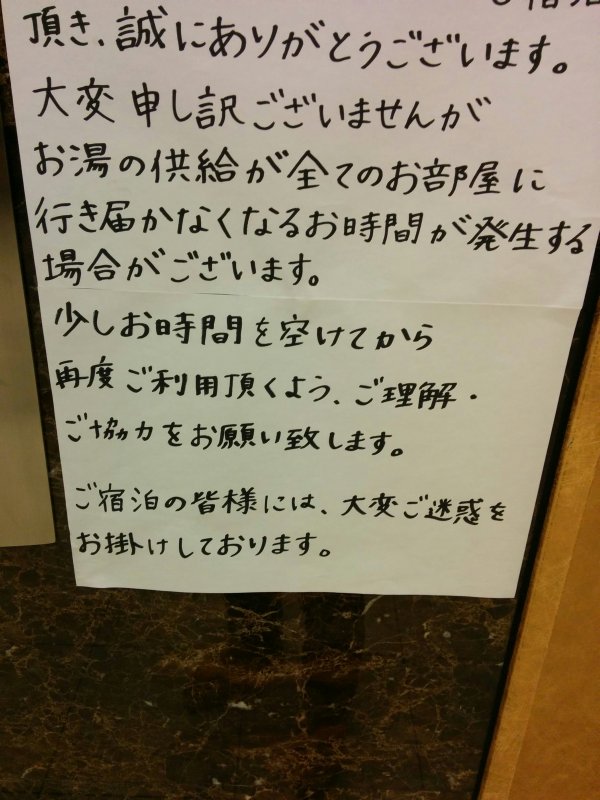 頂き、誠にありがとうございます。
大変申し訳ございませんが
お湯の供給が全てのお部屋に
行き届かなくなるお時間が発生する
場合がございます。
少しお時間を空けてから
再度ご利用頂くよう、ご理解・
ご協力をお願い致します。
ご宿泊の皆様には、大変ご迷惑を
お掛けしております。